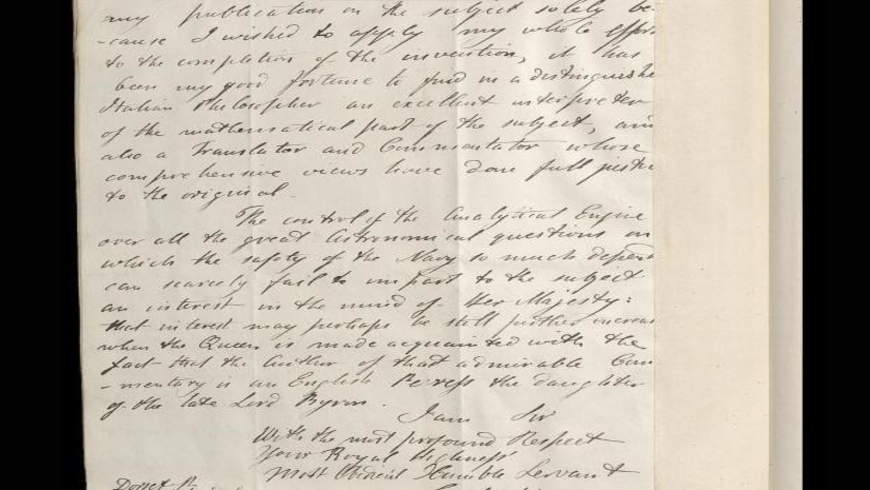 my publication on the subject solely be-
-cause I wished to apply my whole effort
to the completion of the invention, it has
been my good fortune to find in a distinguishe
Italian Philosopher an excellent interpreter
of the mathematical part of the subject, and
also a Translator and Commentator whose
comprehensive views have done full justice
to the original.
The control of the Analytical Engine
over all the great Astronomical questions on
which the safety of the Navy so much depend
can scarcely fail to impart to the subject
an interest in the mind of Her Majesty:
that interest may perhaps be still further increas
when the Queen is made acquainted with the
fact that the Author of that admirable Com
-mentary is an English Peeress the daughter
of the late Lord Byron.
I am Sir
With the most profound Respect
Your Royal Highness'
Most Obedient Humble Servant
Dorset St